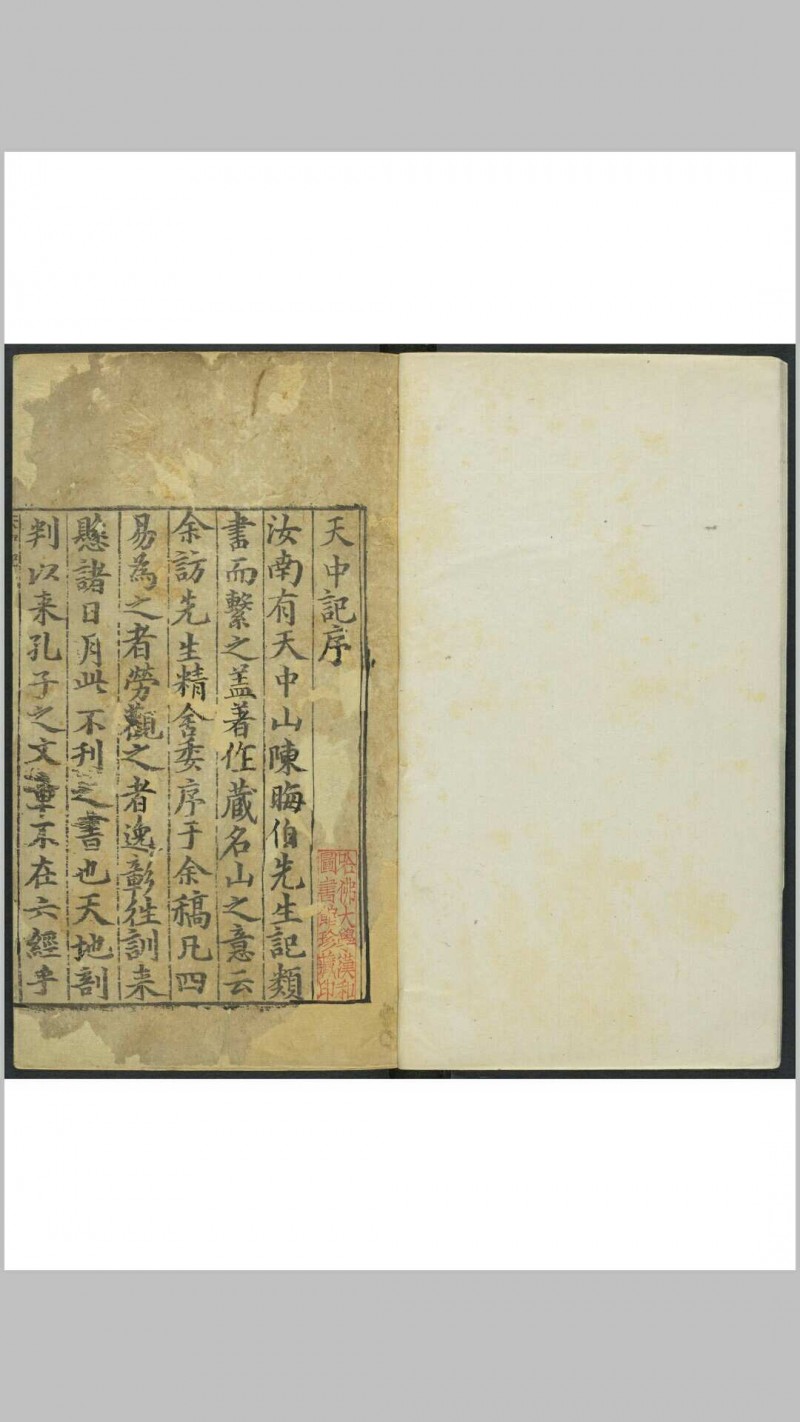 天中記序
汝南有天中山陳晦伯先生記類
書而繫之盖著作蔵名山之意云
余訪先生精舍委序于余稿凡四
易為之者勞觀之者逸彰徃訓来
懸諸日月此不刊之書也天地剖
判以来孔子之文章不在六經乎
哈佛大學漢和
圖書館珍藏印